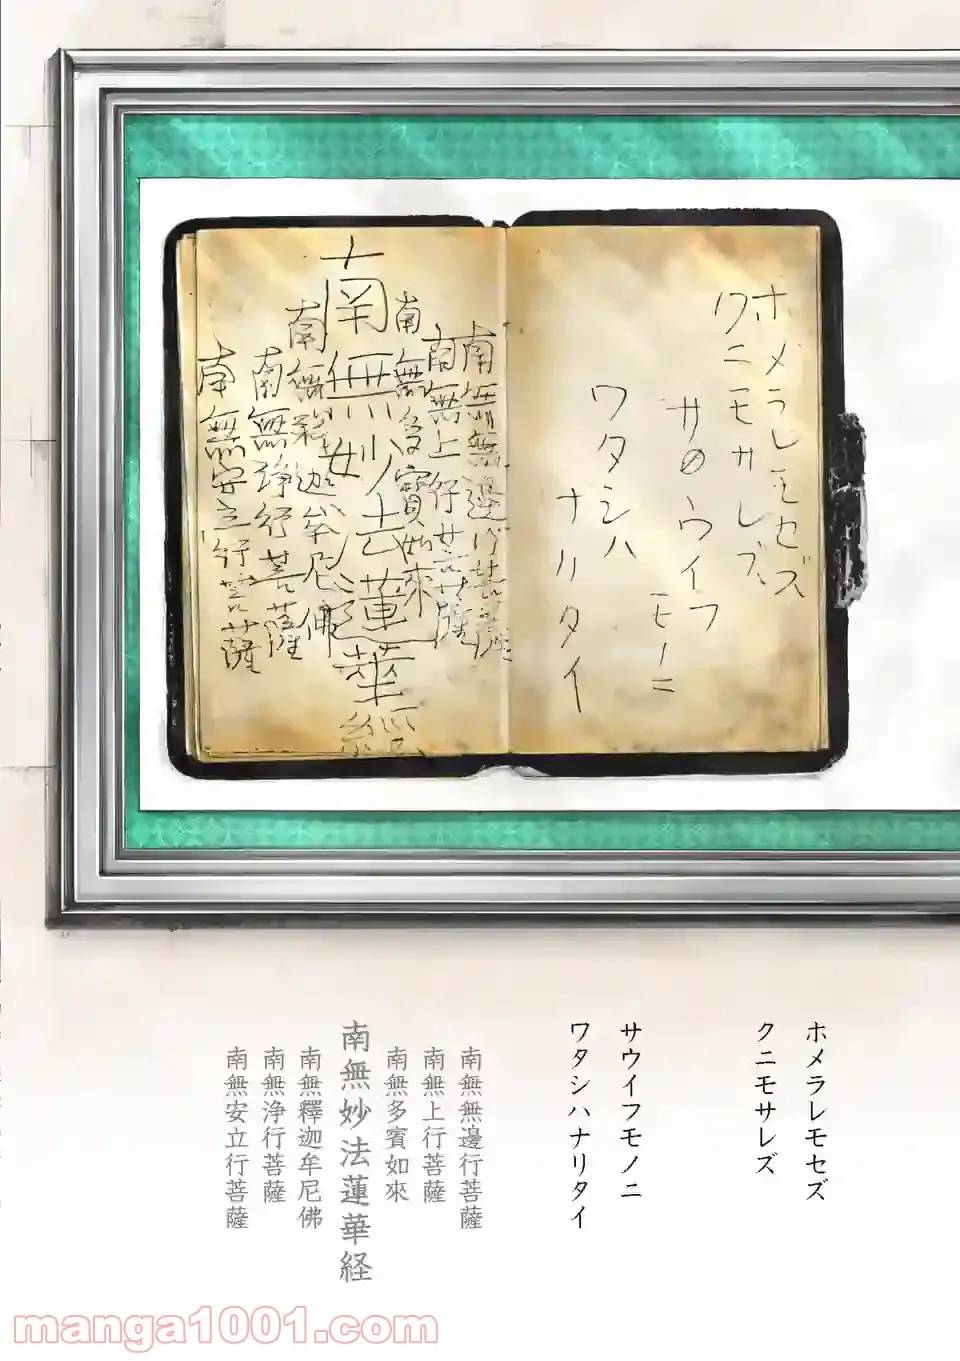 ホメラレモセズ
クニモサレズ
サウイフ
モノニ
ワタシハ
ナリタイ
南無無邊行菩薩
南無上行菩薩
南無多寶如來
南無妙法蓮華経
南無釈迦牟尼佛
南無浄行菩薩
南無安立行菩薩
ホメラレモセズ
クニモサレズ
サウイフモノニ
ワタシハナリタイ
南無無邊行菩薩
南無上行菩薩
南無多賓如來
南無妙法蓮華経
南無釋迦牟尼佛
南無浄行菩薩
南無安立行菩薩
manga1001.com